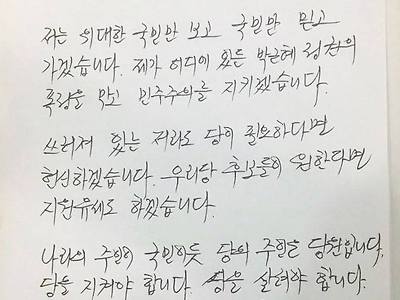 저는 위대한 국민만 보고 국민만 믿고
가겠습니다. 제가 어디에 있든 박근혜 정권의
폭정을 막고 민주주의를 지키겠습니다.
쓰러져 있는 저라도 당이 필요하다면
헌신하겠습니다. 우리당 후보들이 원한다면
지원유세도 하겠습니다.
나라의 주인이 국민이듯 당의 주인은 당원입니다.
당을 지켜야 합니다. 당을 살려야 합니다.